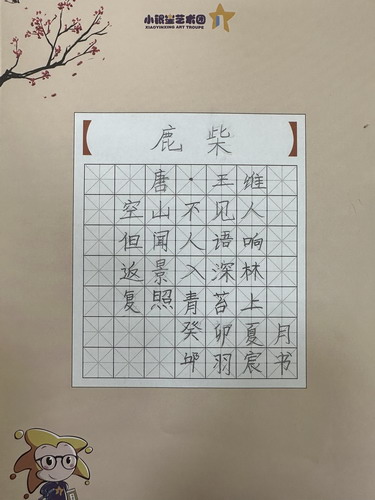 小银星艺术团
XIAOYINXING ART TROUPE
鹿柴
唐·王维
空山不见人
但闻人语响
返景入深林
复照青苔上
癸卯夏月
邱羽宸书